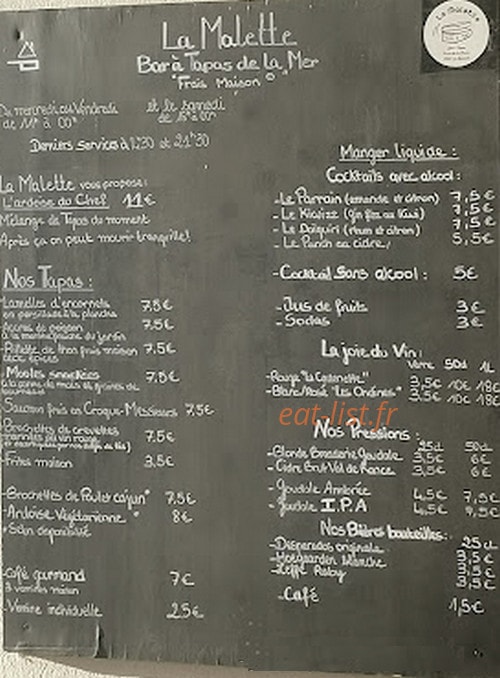 La Malette
Bar à Tapas de la Mer
"Frais Maison"
La Malette
Du mercredi au Vendredi
de 11h à 00h
et le samedi
de 15h à 00h
Derniers services à 1230 et 21h30
La Malette vous propose:
L'ardoise du Chef 11€
Mélange de Tapas du moment
Après ça on peut mourir tranquille!
Nos Tapas :
Lamelles d'encornets 7,5€
en persillade à la plancha
Acras de poisson 7.5€
à la menthe du jardin
Rillette de thon frais maison 7.5€
- Moules 7,5€
Saumon frais en Croque-Messieurs 7,5€
- Brochettes de crevettes 7.5€
marinées au vin rouge
- Frites maison 3,5€
- Brochettes de Poulet cajun* 7,5€
- Ardoise Végétarienne * 8€
* Selon disponibilité
- Café gourmand 7€
3 verrines maison
- Verrine individuelle 2,5€
Manger liquide :
Cocktails avec alcool :
- Le Parrain (amande et citron) 7,5€
- Le Kiwizz (gin fizz au kiwi) 7,5€
- Le Daïquiri (rhum et citron) 7,5€
- Le Punch au cidre, 5,5€
- Cocktail Sans alcool : 5€
- Jus de fruits 3€
- Sodas 3€
La joie du Vin :
Verre 50cl 1L
- Rouge 3,5€ 10€ 18€
- Blanc/Rosé "Les Ondines" 3,5€ 10€ 18€
eat-list.fr
Nos Pressions :
25cl 50cl
- Blonde Brasserie Goudale 3,5€ 6€
- Cidre Brut Val de Rance 3,5€ 6€
- Goudale Ambrée 4,5€ 7,5€
- Goudale I.P.A 4,5€
Nos Bières bouteilles :
25cl
- Desperados originale 3,5€
- Hoegaarden blanche 3,5€
- Leffe Ruby 3,5€
- Café 1,5€